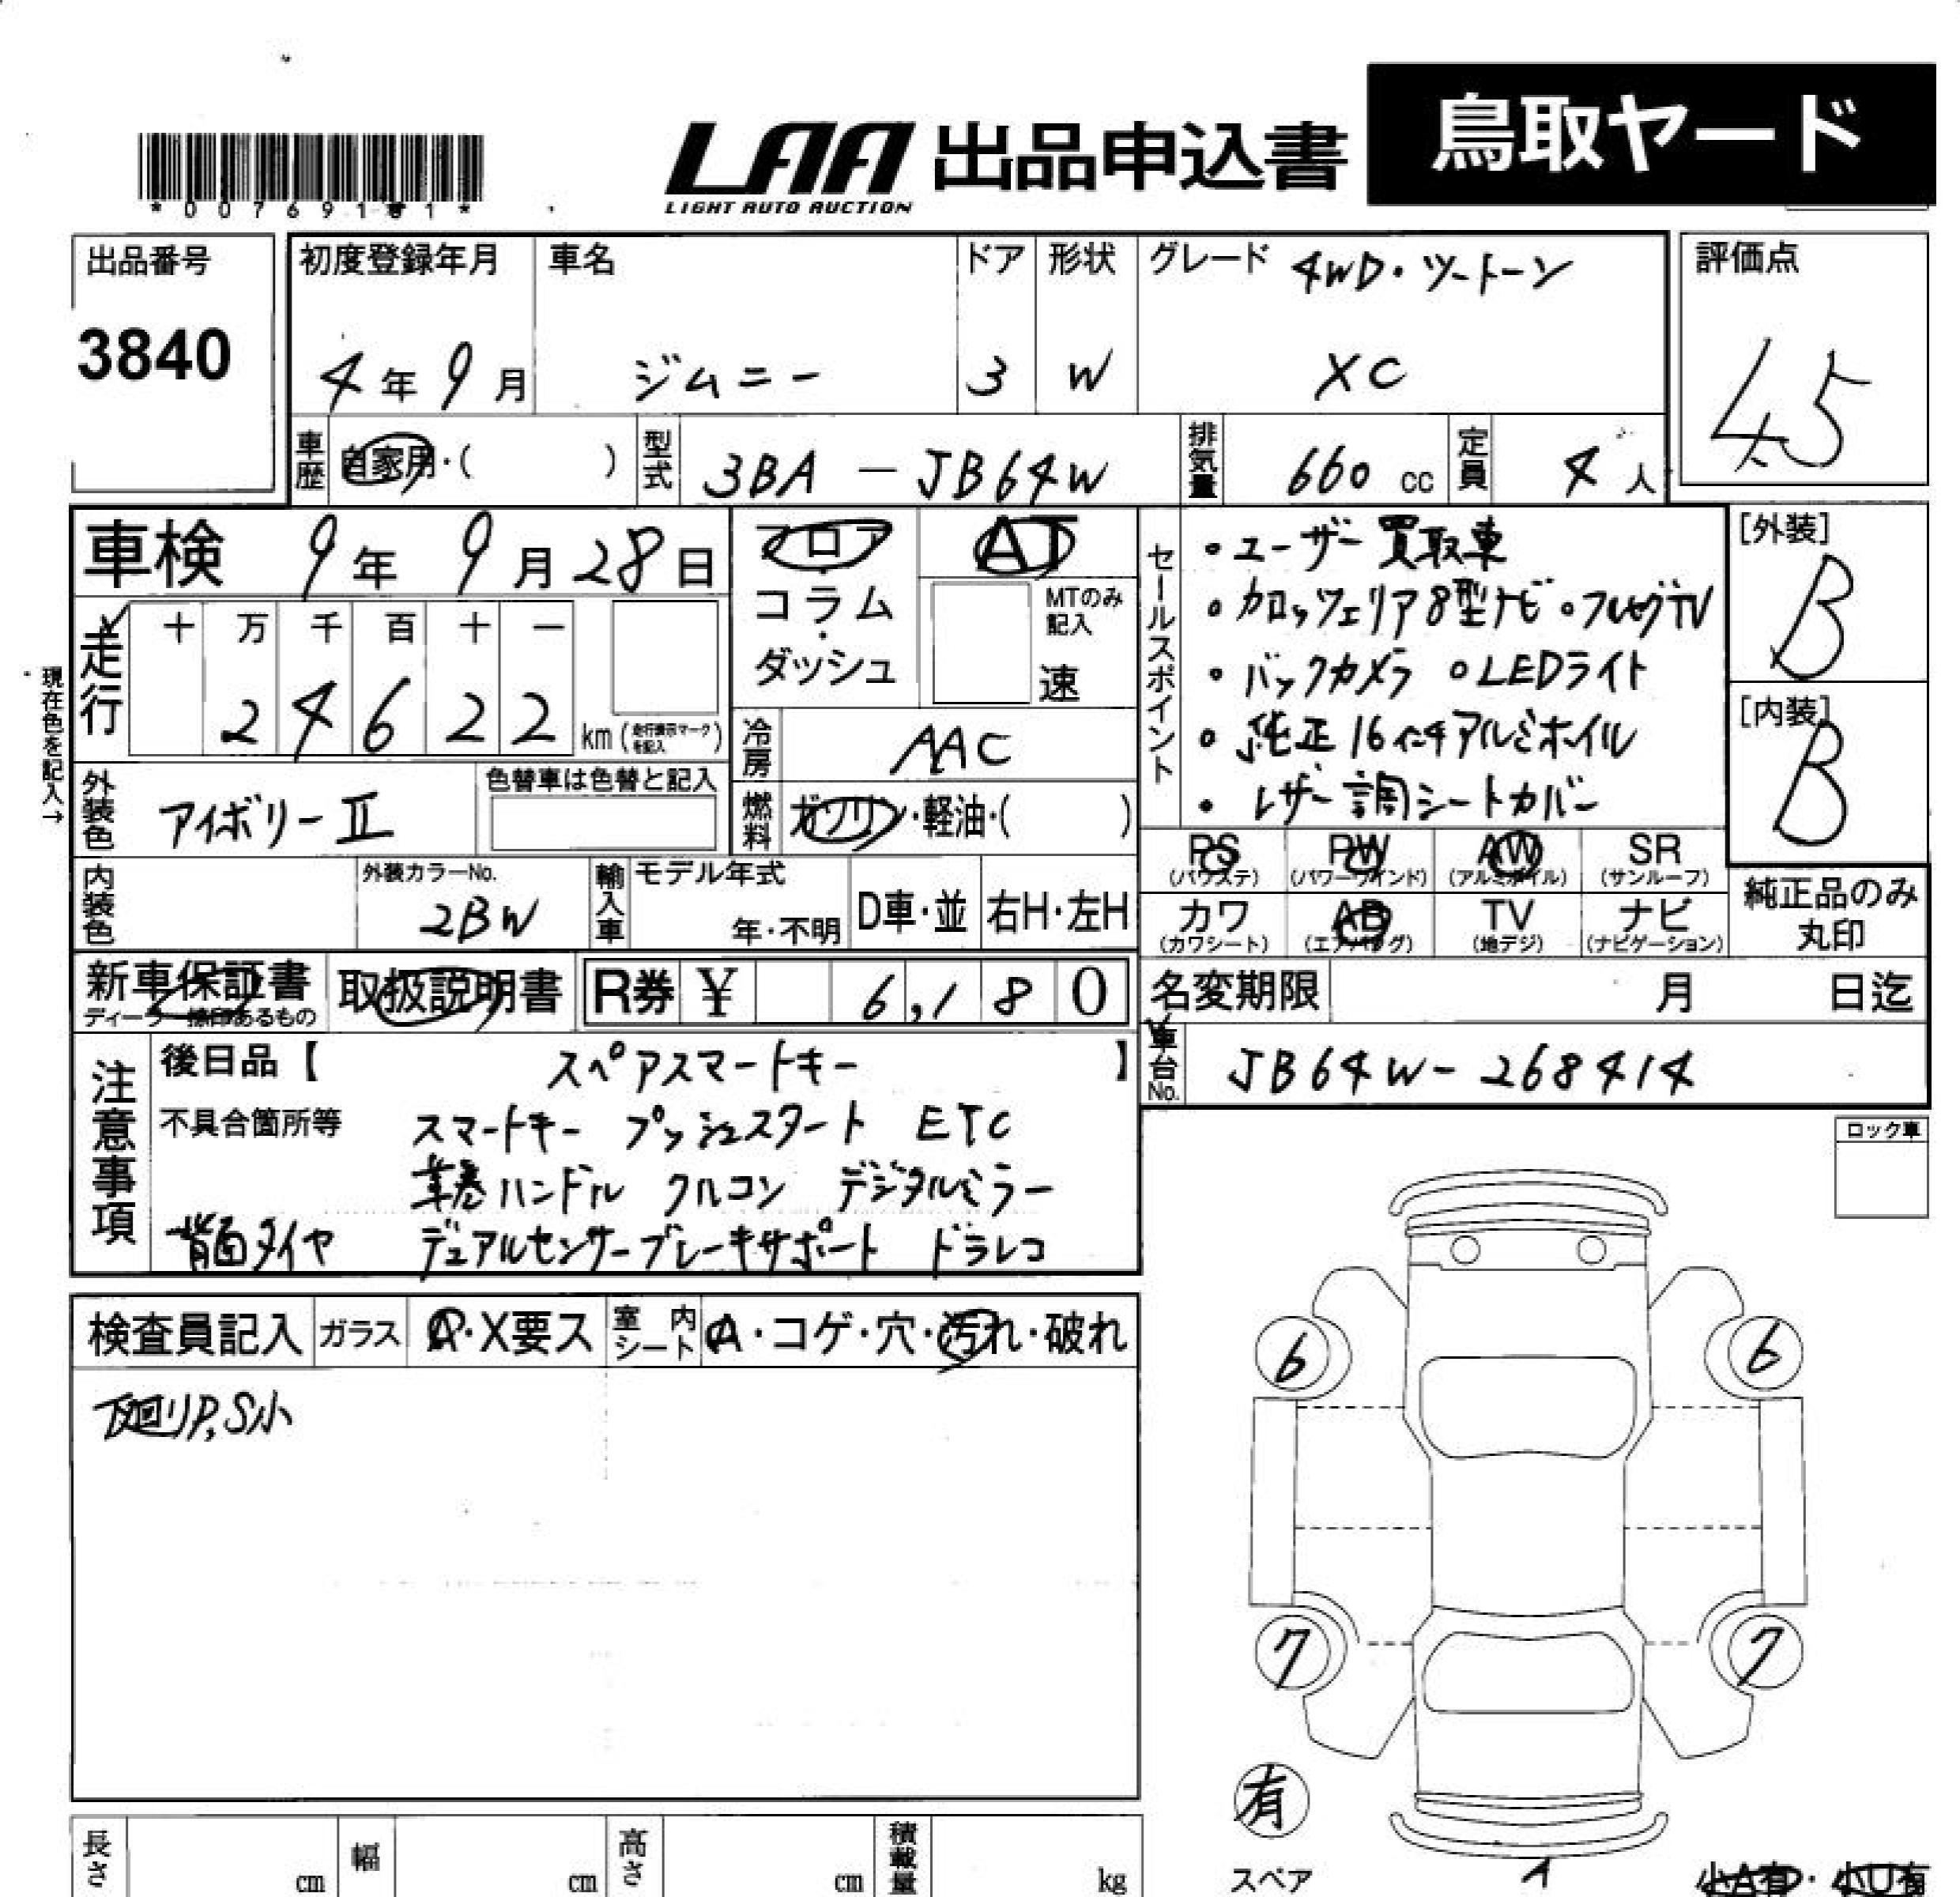 LAA 出品申込書 鳥取ヤード
LIGHT AUTO AUCTION
出品番号
3840
初度登録年月
4年9月
車名
ジムニー
ドア
3
形状
W
グレード 4WD・ツートーン
XC
評価点
4.5
車歴 自家用・( )
型式 3BA-JB64W
排気量 660 cc
定員 4人
車検 9年9月28日
フロア・コラム・ダッシュ
AT
MTのみ記入
速
走行 十 万 千 百 十 一
24622 km(走行表示マークを記入)
現在色を記入→
冷房 AAC
外装色 アイボリーII
色替車は色替と記入
燃料 ガソリン・軽油・( )
セールスポイント
・ユーザー買取車
・カロッツェリア8型ナビ・フルセグTV
・バックカメラ ・LEDライト
・純正16インチアルミホイル
・レザー調シートカバー
[外装]
B
[内装]
B
内装色
外装カラーNo.
2BW
輸入車
モデル年式
年・不明
D車・並
右H・左H
PS (パワステ) PW (パワーウインド) AW (アルミホイル) SR (サンルーフ)
カワ (カワシート) AB (エアバッグ) TV (地デジ) ナビ (ナビゲーション)
純正品のみ丸印
新車保証書
ディーラー捺印あるもの
取扱説明書
R券 ¥ 6,180
名変期限 月 日迄
車台No. JB64W-268414
注意事項
後日品【 スペアスマートキー 】
不具合箇所等 スマートキー プッシュスタート ETC
革巻ハンドル クルコン デジタルミラー
背面タイヤ デュアルセンサーブレーキサポート ドラレコ
ロック車
検査員記入 ガラス A・X要ス 室内シート A・コゲ・穴・汚れ・破れ
下廻りP,S小
6 6
7 7
有
スペア
長さ cm 幅 cm 高さ cm 積載量 kg
小A有・小U有